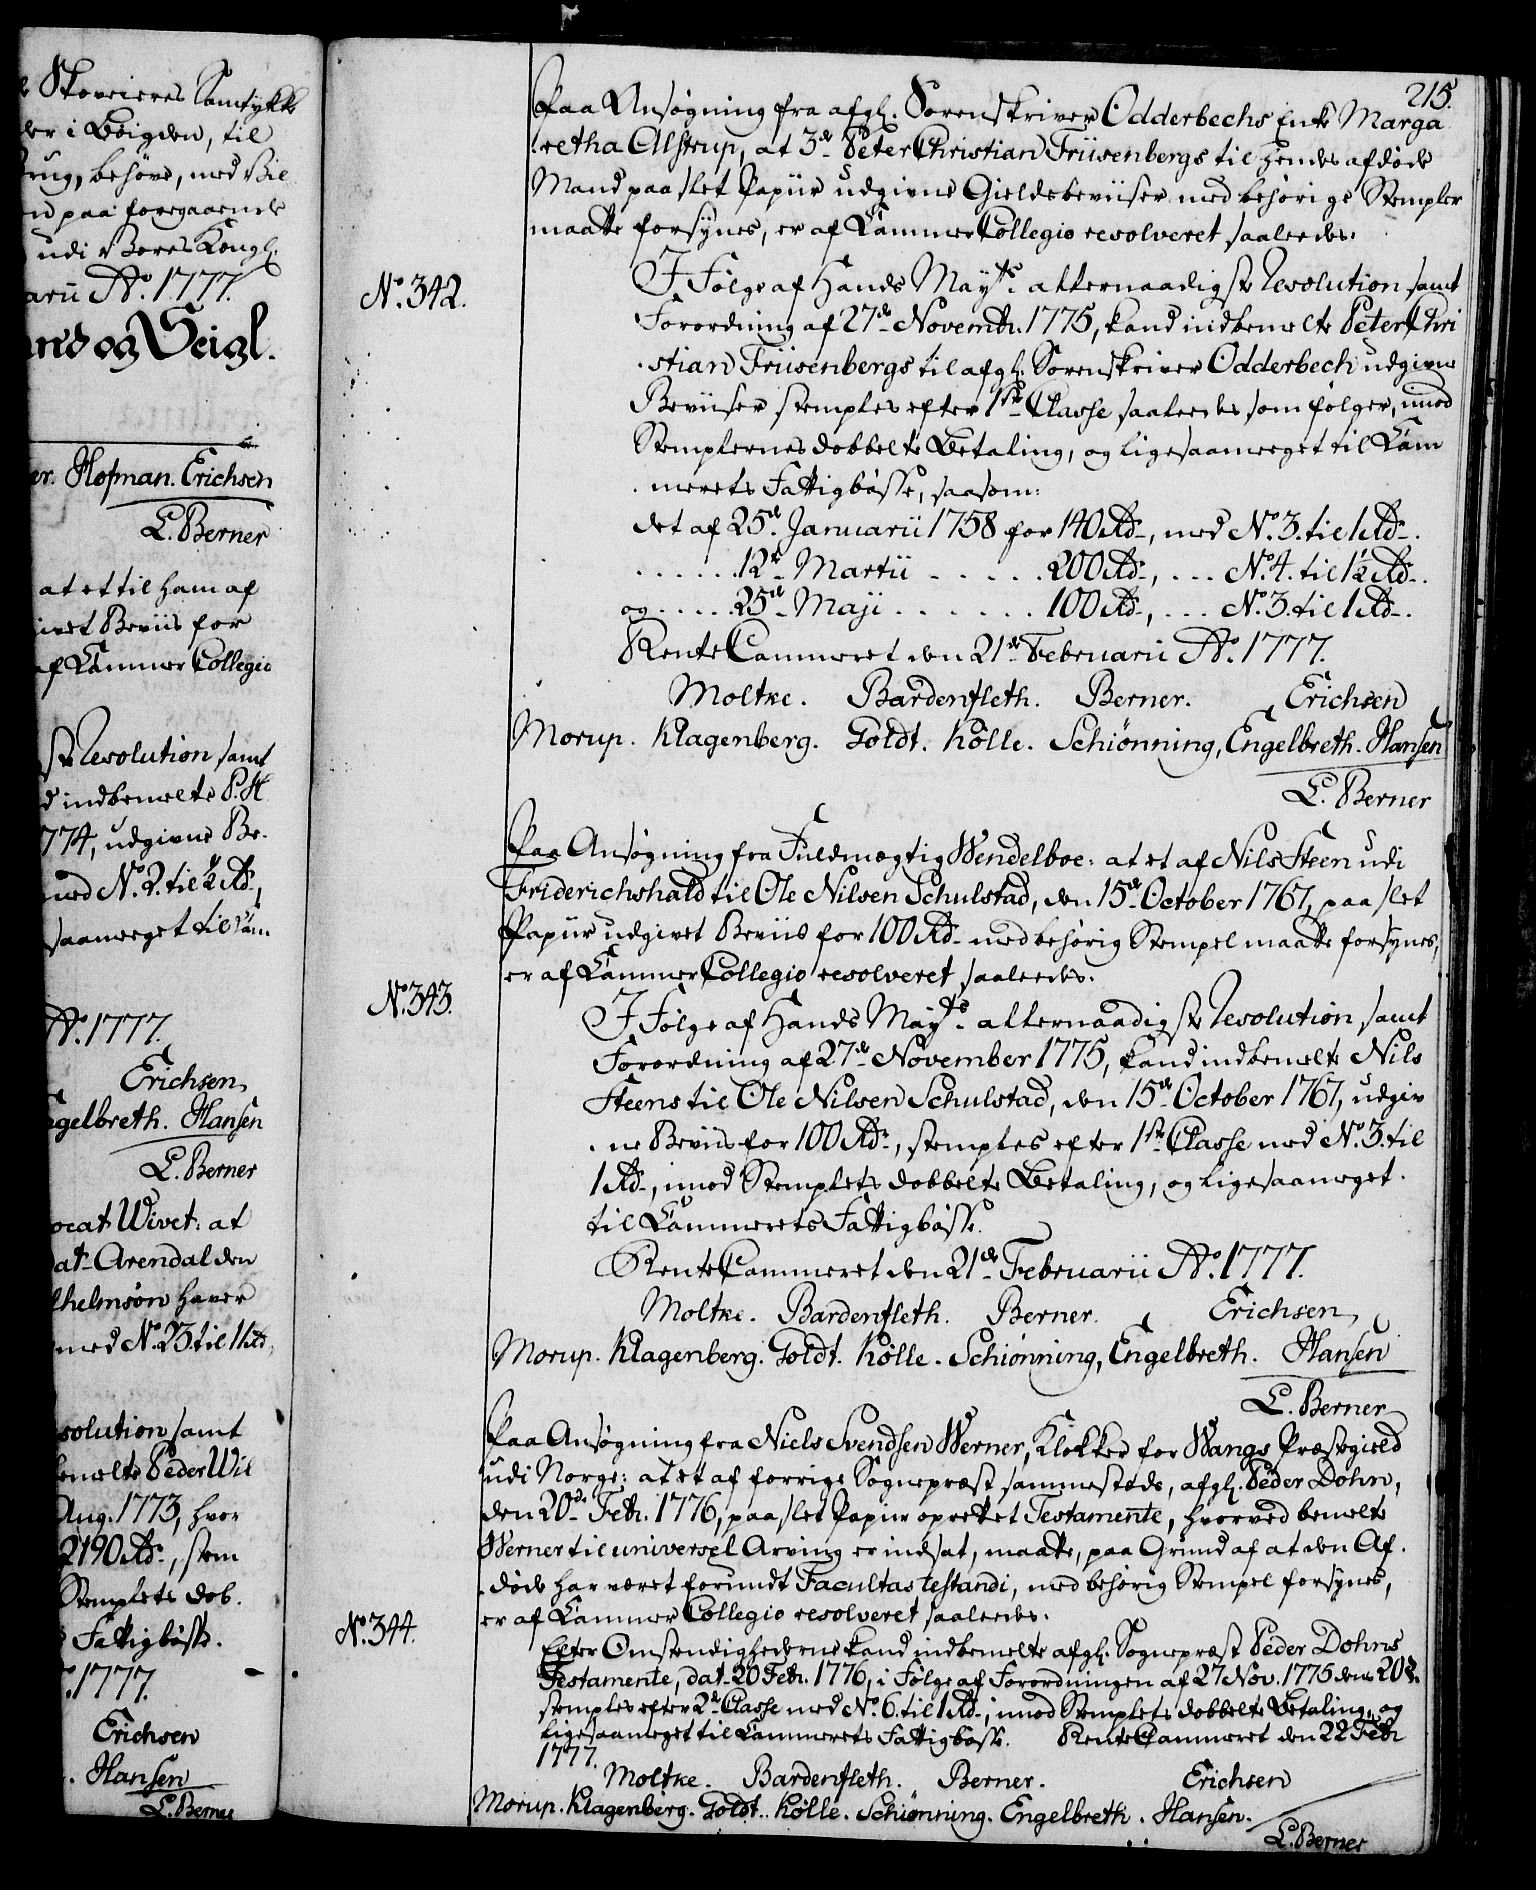 Skoveieres Samtykke
i Bøigden, til
brug, behøve, med Bil
paa foregaaende
udi Vores Kongl.
arii Ao. 1777.
og Seigl.
Hofman. Erichsen
L. Berner
at et til ham af
givet Beviis for
af Kammer Collegio
Resolution samt
indbemelte P. H.
774, udgivne Be.
med No. 2. til ½ Rd.,
saameget til Kam.
Ao. 1777.
Erichsen,
Engelbreth. Hansen
L. Berner
Wivet: at
dat. Arendal den
lhelmsøn haver
med No. 23. til 11 Rd,
solution samt
bemelte Peder Wil
Aug. 1773, hvor
2190 Rd., som
Stemplets dob.
Fattigbøsse.
1777.
Erichsen
Hansen
L. Berner
215.
Paa Ansøgning fra afgl. Sorenskriver Odderbechs Enke Marga
retha Alstrup, at 3de Peter Christian Friisenbergs til hendes afdøde
Mand paa slet Papiir udgivne Gieldsbeviiser med behørige Stempler
maatte forsynes, er af Kammer Collegio resolveret saaledes:
No. 342.
I Følge af Hands Mayts. allernaadigste Resolution samt
Forordning af 27de Novembr. 1775, kand indbemelte Peter Chri
stian Friisenbergs til afgl. Sorenskriver Odderbech udgivne
Beviiser stemples efter 1ste Classe saaledes som følger, imod
Stemplernes dobbelte Betaling, og ligesaameget til Kam
merets Fattigbøsse, saasom:
det af 25de Januarii 1758 for 140 Rd., med No. 3. til 1 Rd.
. . . . . . 12te Martii . . . . . 200 Rd., . . . No. 4. til 1½ Rd.
og . . . . . 25de Maji . . . . . . . 100 Rd., . . . No. 3. til 1 Rd.
Rente Cammeret den 21de Februarii Ao. 1777.
Moltke. Bardenfleth. Berner. Erichsen
Morup. Klagenberg. Goldt. Kølle. Schiønning, Engelbreth. Hansen
L. Berner
Paa Ansøgning fra Fuldmægtig Wendelboe: at et af Nils Steen udi
Friderichshald til Ole Nilsen Schulstad, den 15de October 1767, paa slet
Papiir udgivet Beviis for 100 Rd. med behørig Stempel maatte forsynes,
er af Kammer Collegio resolveret saaledes:
No. 343.
I Følge af Hands Mayts. allernaadigste Resolution samt
Forordning af 27de November 1775, kand indbemelte Nils
Steens til Ole Nilsen Schulstad, den 15de October 1767, udgiv
ne Beviis for 100 Rdr., stemples efter 1ste Classe med No. 3. til
1 Rd., imod Stemplets dobbelte Betaling, og ligesaameget
til Kammerets Fattigbøsse.
Rente Cammeret den 21de Februarii Ao. 1777.
Moltke. Bardenfleth. Berner. Erichsen,
Morup. Klagenberg. Goldt. Kølle. Schiønning, Engelbreth. Hansen
L. Berner
Paa Ansøgning fra Niels Svendsen Werner, Klokker for Wangs Præstegield
udi Norge: at et af forrige Sognepræst sammestæds, afgl. Peder Dohrn,
den 20de Febr. 1776, paa slet Papiir oprettet Testamente, hvorved bemelte
Werner til universel Arving er indsat, maatte, paa Grund af at den Af.
døde har været forundt Facultas testandi, med behørig Stempel forsynes,
er af Kammer Collegio resolveret saaledes:
No. 344.
Efter Omstændighederne kand indbemelte afgl. Sognepræst Peder Dohrns
Testamente, dat. 20 Febr. 1776, i Følge af Forordningen af 27 Nov. 1775 dens 20 §.
stemples efter 2de Classe med No. 6. til 1 Rd., imod Stemplets dobbelte Betaling, og
ligesaameget til Kammerets Fattigbøsse. Rente Cammeret den 22 Febr
1777.
Moltke. Bardenfleth. Berner. Erichsen
Morup. Klagenberg. Goldt. Kølle. Schiønning. Engelbreth. Hansen.
L. Berner